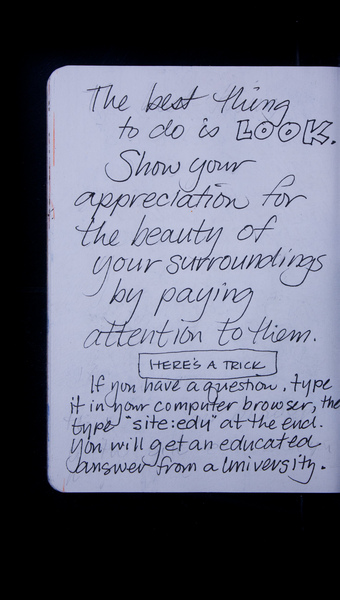 The best thing
to do is LOOK.
Show your
appreciation for
the beauty of
your surroundings
by paying
attention to them.
HERE'S A TRICK
If you have a question, type
it in your computer browser, the
type "site:edu" at the end.
You will get an educated
answer from a University.